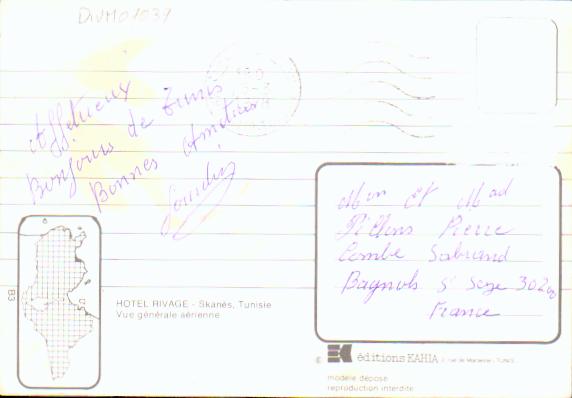 DIVM01031
Affectueux
Bonjours de Tunis
Bonnes Amitiés
Mon et Mad
Pierre
Combe Sabrand
Bagnols S Seze 302
France
HOTEL RIVAGE - Skanès, Tunisie
Vue générale aérienne
B3
© EK éditions KAHIA 2, rue de Marseille - TUNIS
modèle déposé
reproduction interdite